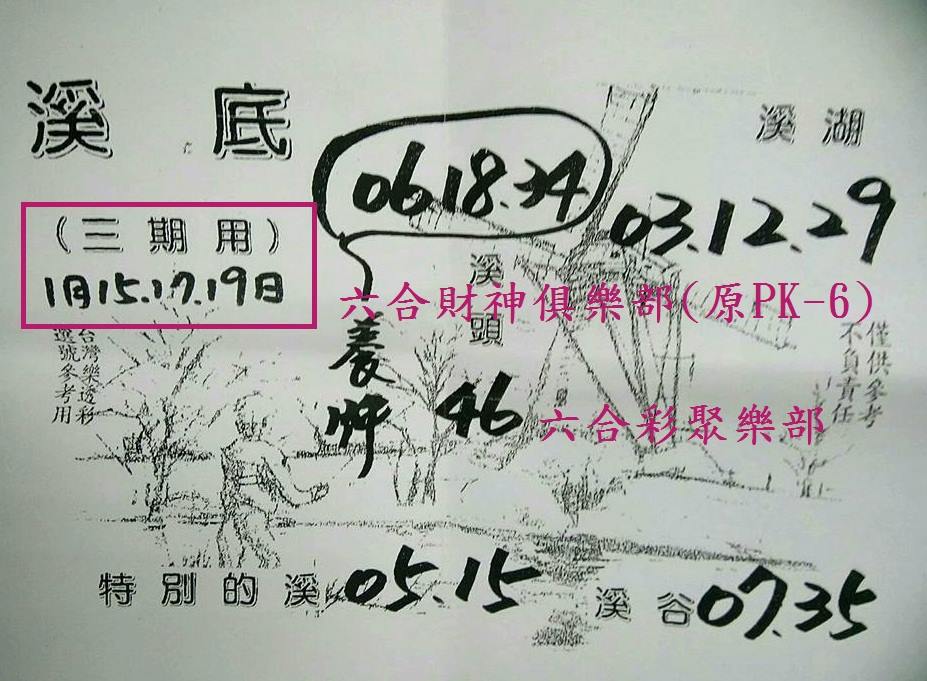 溪底
溪湖
06.18.34
03.12.29
(三期用)
1月15.17.19日
溪頭
六合財神俱樂部(原PK-6)
台灣樂透彩
選號參考用
養牌
46
僅供參考
不負責任
六合彩聚樂部
特別的溪 05.15
溪谷 07.35